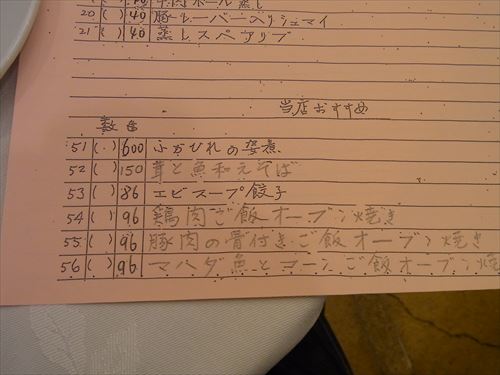 20 ( ) 40 豚レーバーヘリシュマイ
21 ( ) 40 蒸しスペアリブ
当店おすすめ
数
51 ( ) 600 ふかひれの姿煮
52 ( ) 150 茸と魚和えそば
53 ( ) 86 エビスープ餃子
54 ( ) 96 鶏肉ご飯オーブン焼き
55 ( ) 96 豚肉の骨付きご飯オーブン焼き
56 ( ) 96 マハタ魚とコーンご飯オーブン焼